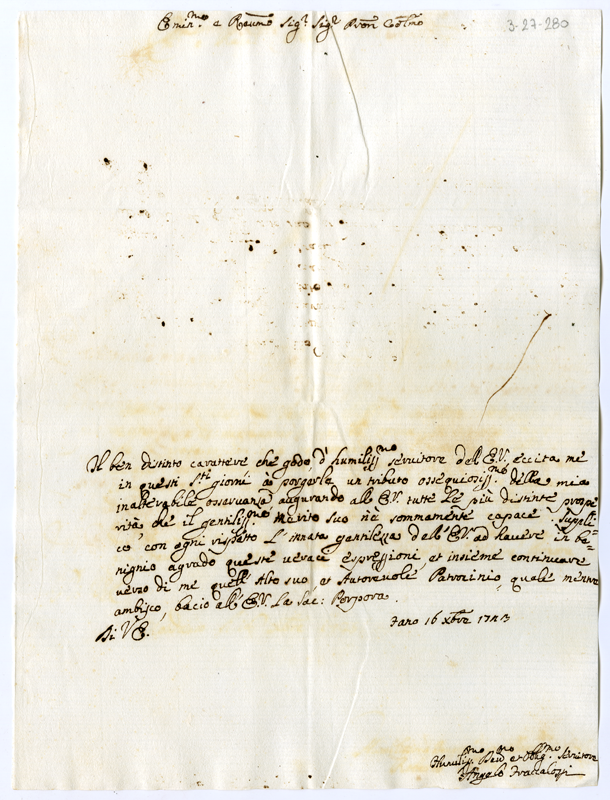 3-27-280
Emin.mo e Reũmo Sig.r Sig.r Pron Colmo
Il ben distinto carattere che godo d'humiliss.mo servitore dell'E.V. eccita me
in questi S.ti giorni à porgerle un tributo ossequiosiss.mo della mia
inalterabile osservanza, augurando all'E.V. tutte le più distinte prospe=
rità, che il gentiliss.mo merito suo n'è sommamente capace. Suppli=
co, con ogni rispetto L'innata gentilezza dell'E.V. ad havere in be=
nignio agrado queste veraci espressioni, et insieme continuare
verso di me quell'Alto suo, et Autorevole Patrocinio, quale mentre
ambisco, bacio all'E.V. La Sac: Porpora.
Di V.E.
Fano 16 Xbre 1743
Humiliss.mo Dev.mo et Obbg.mo Servitore
Angelo